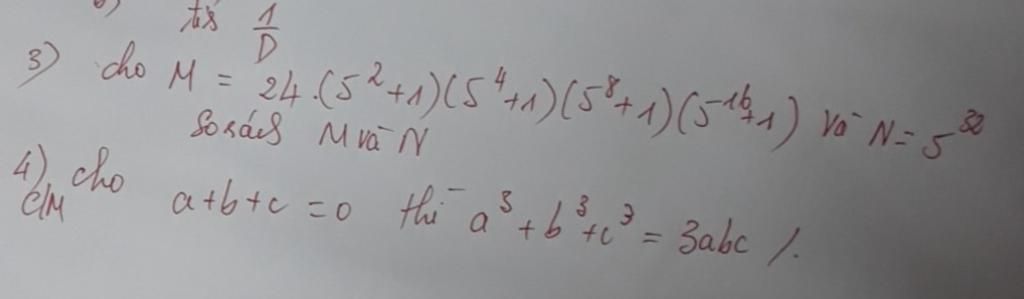 tử 1/D
3) cho M = 24.(5²+1)(5⁴+1)(5⁸+1)(5¹⁶+1) và N = 5³²
So sánh M và N
4) cho a+b+c = 0 thì a³+b³+c³ = 3abc /.
C/M